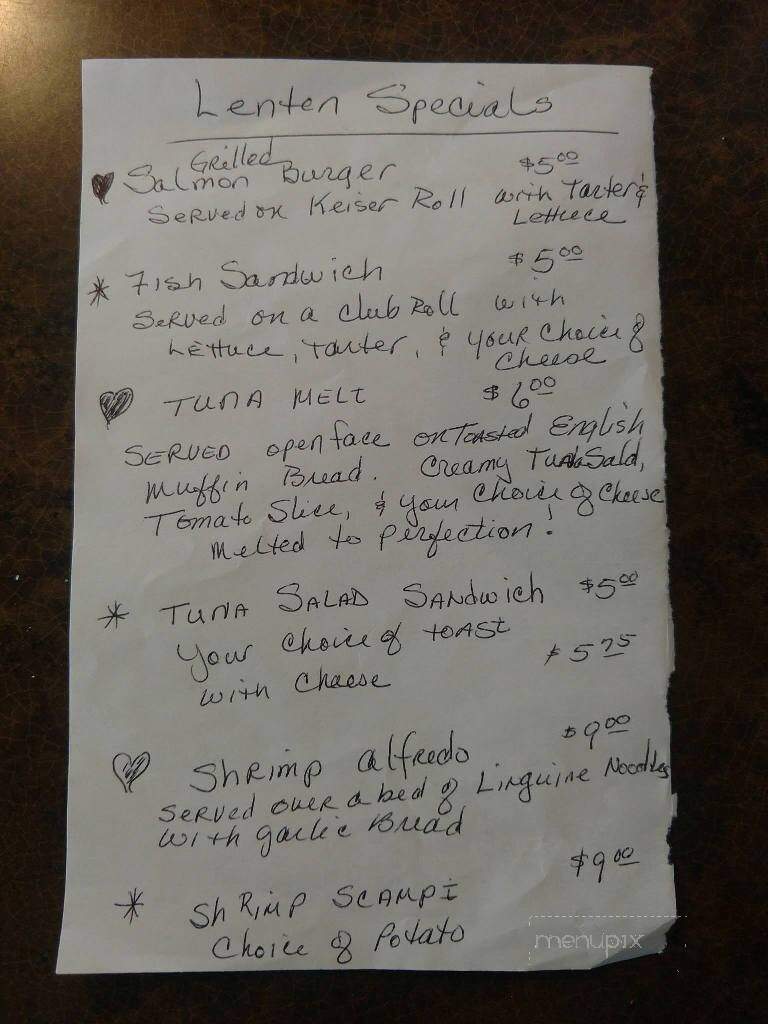 Lenten Specials
Grilled
Salmon Burger $5.00
Served on Keiser Roll with Tarter &
Lettuce
Fish Sandwich $5.00
Served on a club Roll with
Lettuce, Tarter, & your choice of
Cheese
Tuna Melt $6.00
Served open face on Toasted English
Muffin Bread. Creamy Tuna Salad,
Tomato Slice, & your choice of Cheese
Melted to perfection!
Tuna Salad Sandwich $5.00
Your choice of toast
with Cheese $5.75
Shrimp alfredo $9.00
Served over a bed of Linguine Noodles
with garlic Bread
Shrimp Scampi $9.00
Choice of Potato
menupix